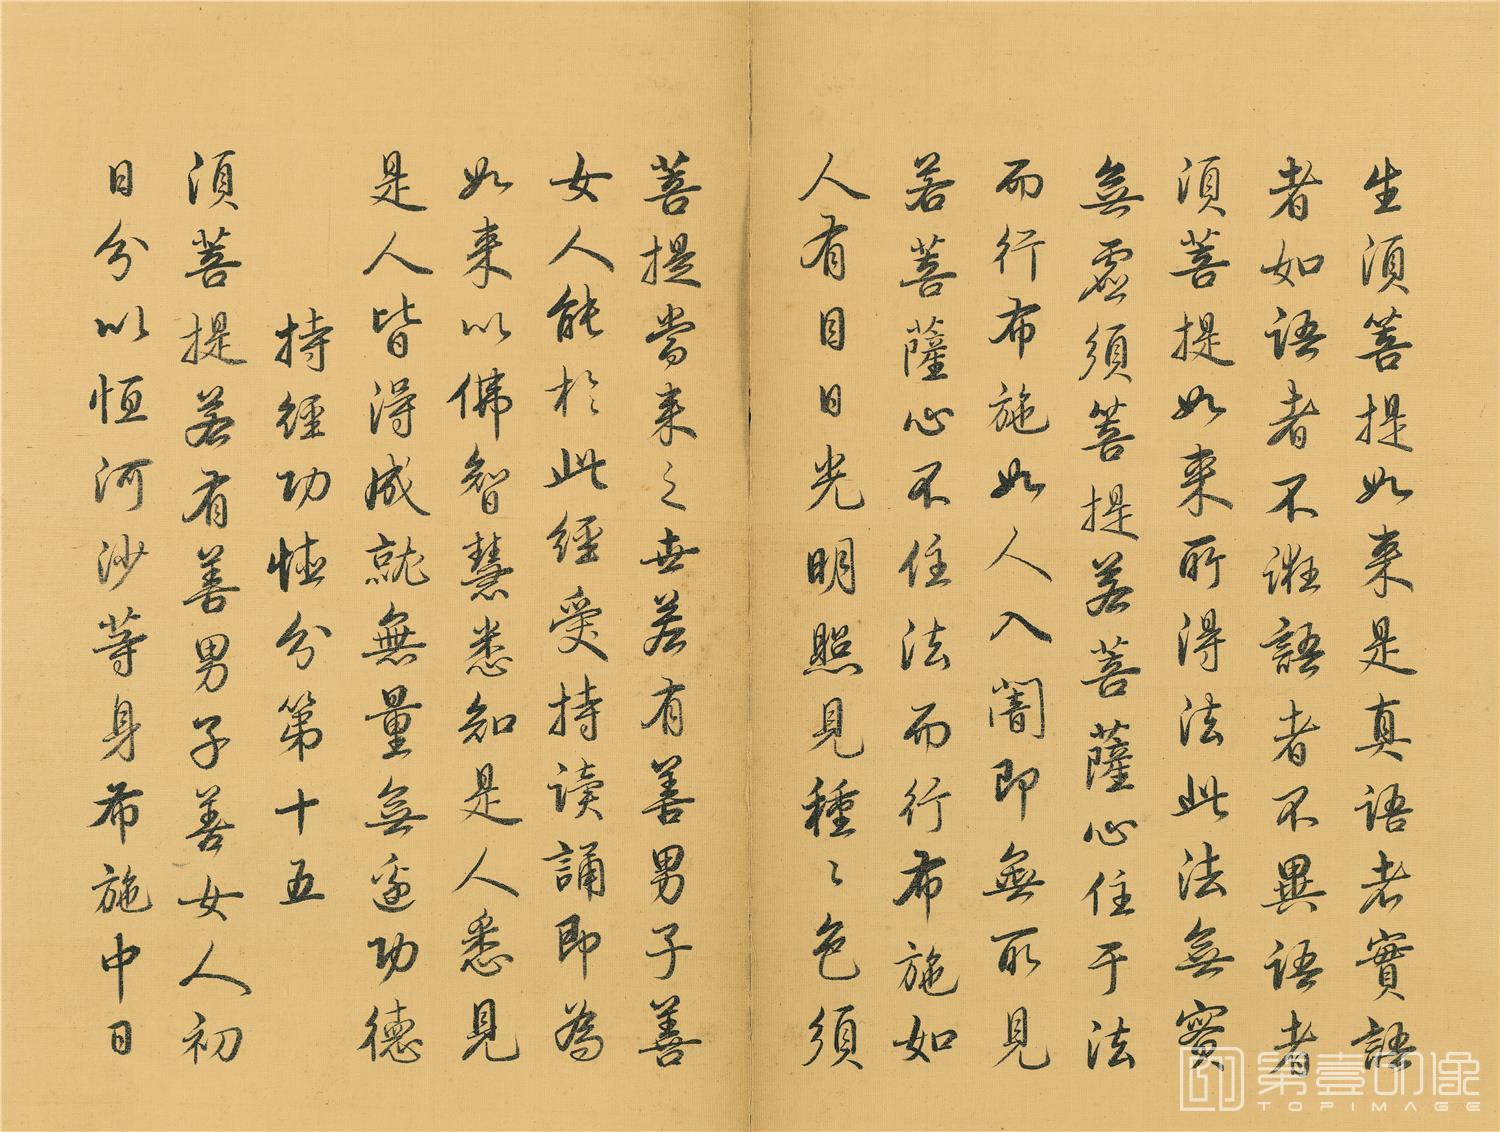 生須菩提如来是真語者實語
者如語者不誑語者不異語者
須菩提如来所得法此法無實
無虛須菩提若菩薩心住于法
而行布施如人入闇即無所見
若菩薩心不住法而行布施如
人有目日光明照見種〻色須
菩提當来之世若有善男子善
女人能於此經受持读誦即為
如来以佛智慧悉知是人悉見
是人皆得成就無量無邊功德
持經功德分第十五
須菩提若有善男子善女人初
日分以恒河沙等身布施中日
第壹印像
TOPIMAGE